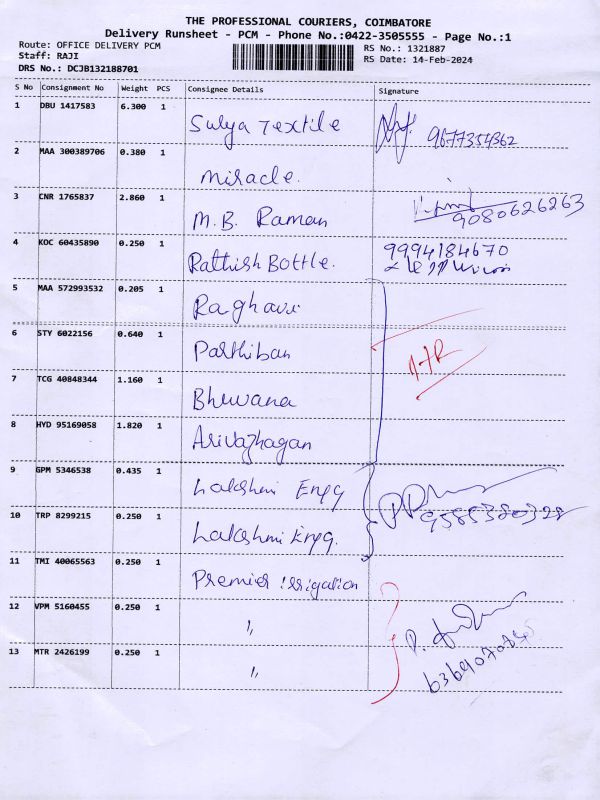 THE PROFESSIONAL COURIERS, COIMBATORE
Delivery Runsheet - PCM - Phone No.:0422-3505555 - Page No.:1
Route: OFFICE DELIVERY PCM RS No.: 1321887
Staff: RAJI RS Date: 14-Feb-2024
DRS No.: DCJB132188701
S No Consignment No Weight PCS Consignee Details Signature
1 DBU 1417583 6.300 1 Surya Textile 9677354362
2 MAA 300389706 0.380 1 Miracle.
3 CNR 1765837 2.860 1 M.B. Raman 9080626263
4 KOC 60435890 0.250 1 Rathish Bottle. 9994184670
5 MAA 572993532 0.205 1 Raghavi
6 STY 6022156 0.640 1 Parthiban
7 TCG 40848344 1.160 1 Bhuvana
8 HYD 95169058 1.820 1 Arivazhagan
9 GPM 5346538 0.435 1 Lakshmi Engg
10 TRP 8299215 0.250 1 Lakshmi Engg.
11 TMI 40065563 0.250 1 Premier irrigation
12 VPM 5160455 0.250 1 "
13 MTR 2426199 0.250 1 "